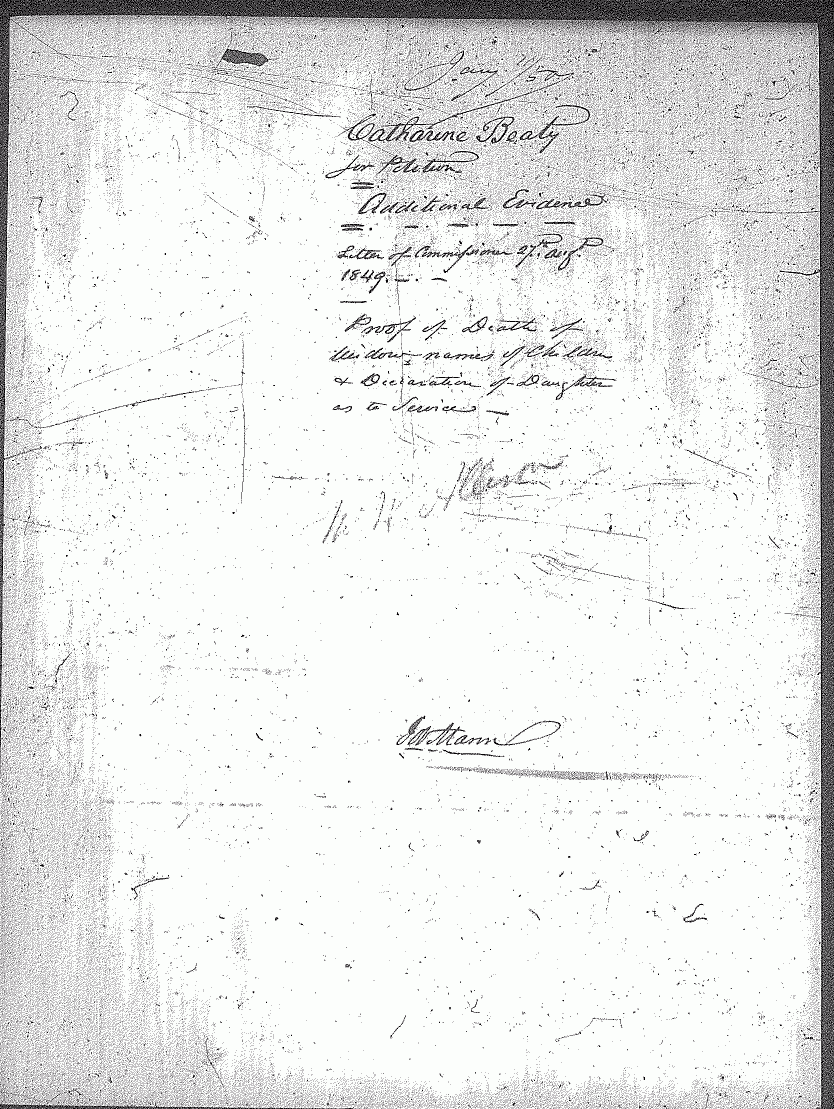 Jany /50
Catharine Beaty
for Petition
Additional Evidence
Letter of Commissioner 27th Augt
1849.
Proof of Death of
Widow - names of Children
& Declaration of Daughter
as to Service -
Mann